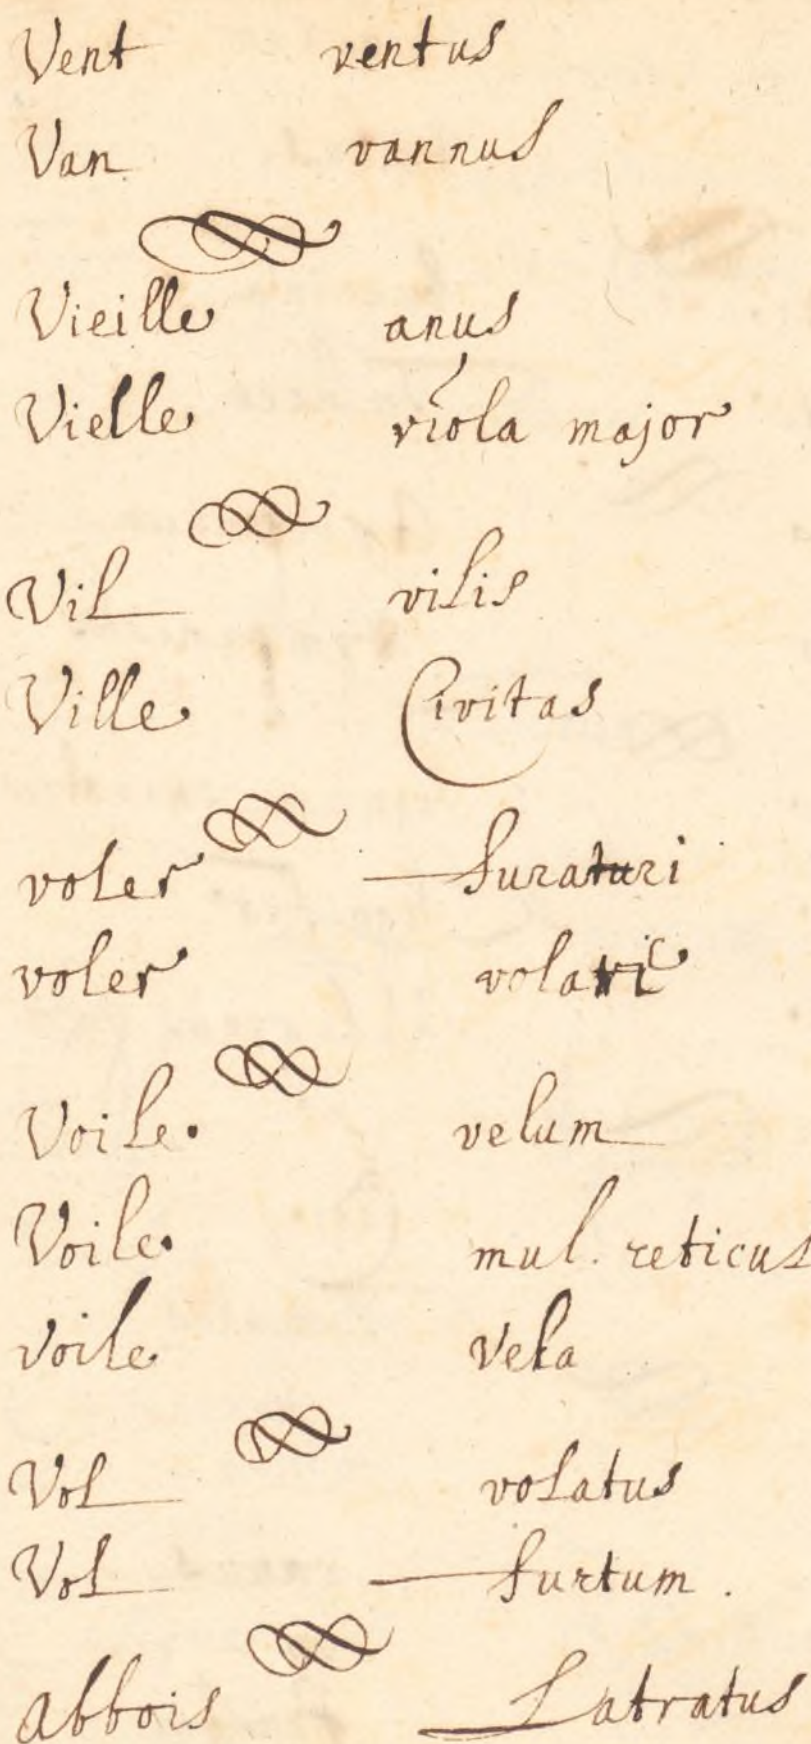 Vent ventus
Van vannus
Vieille anus
Vielle viola major
Vil vilis
Ville Civitas
voler furaturi
voler
Voile. velum
Voile. mul. reticus
voile vela
Vol volatus
Vol furtum.
abbois Latratus